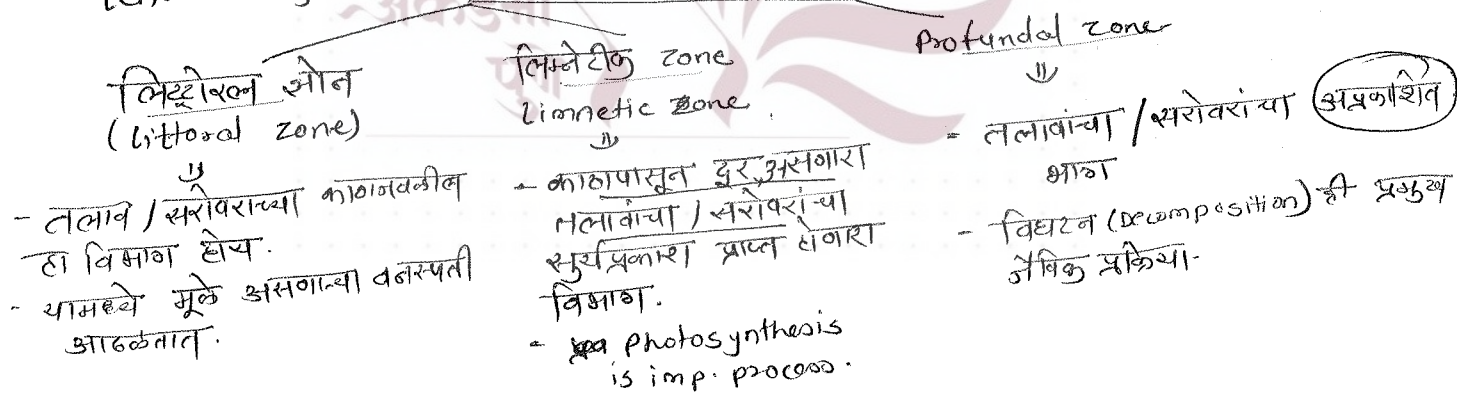 लिट्टोरल झोन
(Littoral zone)
- तलाव / सरोवराच्या काठाजवळील
हा विभाग होय.
- यामध्ये मूळे असणाऱ्या वनस्पती
आढळतात.
लिम्नेटीक zone
Limnetic zone.
- काठापासून दूर असणारा
तलावांचा / सरोवरांचा
सुर्यप्रकाश प्राप्त होणारा
विभाग.
- photosynthesis
is imp. process.
Profundal zone
- तलावांचा / सरोवरांचा अप्रकाशित
भाग
- विघटन (Decomposition) ही प्रमुख
जैविक प्रक्रिया-